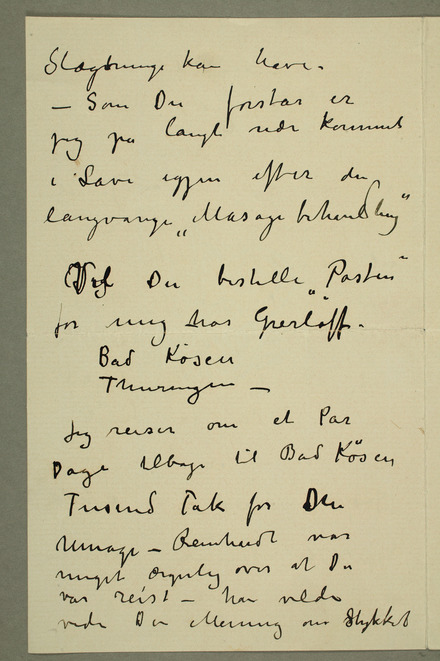 Slægtninge kan have.
– Som Du forstår er
jeg på langt nær kommet
i Lave igjen efter den
langvarige „Masagebehandling"
Vil Du bestille „Posten"
for mig hos Grerløff.
Bad Kösen
Thuringen –
Jeg reiser om et Par
Dage tilbage til Bad Kösen
Tusend Tak for Din
Umage – Reinhardt var
meget ærgerlig over at Du
var reist – han vilde
vide Din Mening om Stykket